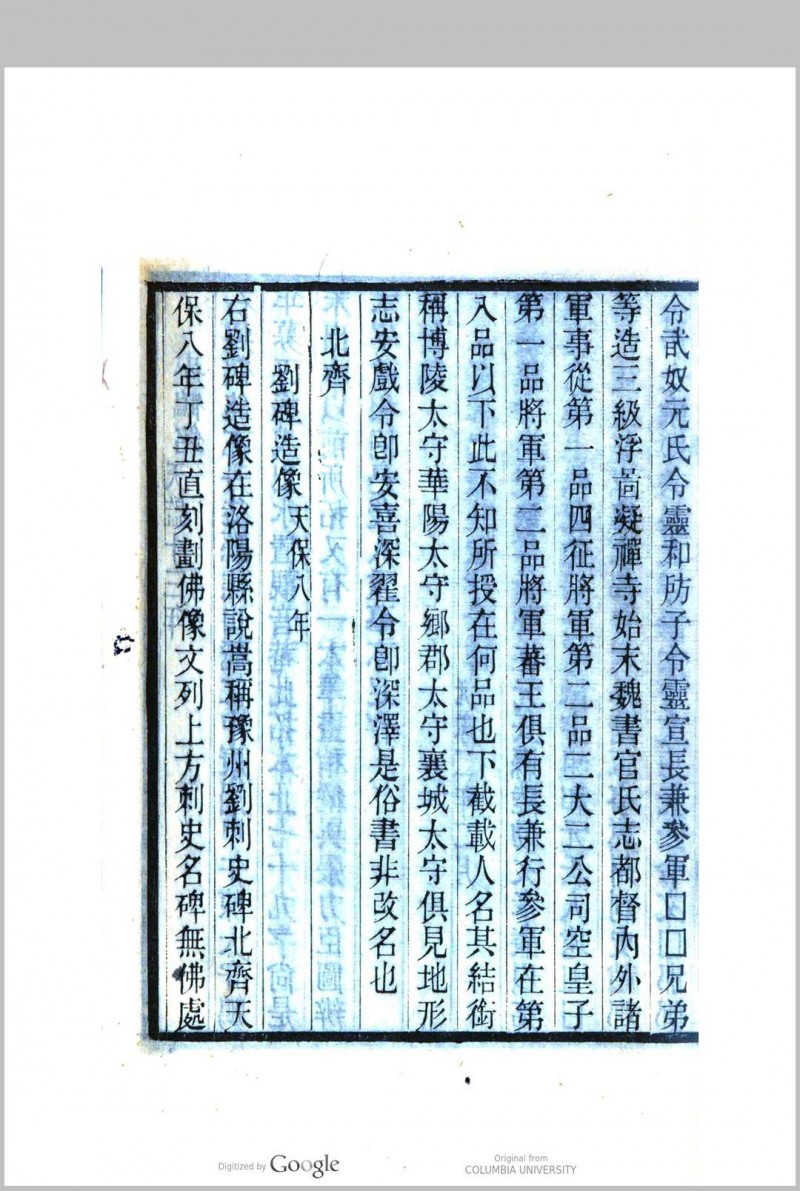 令武奴元氏令靈和肪子令靈宣長兼參軍囗囗兄弟
等造三級浮啚凝禪寺始末魏書官氏志都督內外諸
軍事從第一品四征將軍第二品二大二公司空皇子
第一品將軍第二品將軍蕃王俱有長兼行參軍在第
入品以下此不知所授在何品也下截載人名其結銜
稱博陵太守華陽太守鄉郡太守襄城太守俱見地形
志安戲令卽安喜深翟令卽深澤是俗書非改名也
北齊
劉碑造像 天保八年
右劉碑造像在洛陽縣說嵩稱豫州劉刺史碑北齊天
保八年丁丑直刻劃佛像文列上方刺史名碑無佛處
Digitized by Google
Original from
COLUMBIA UNIVERSITY